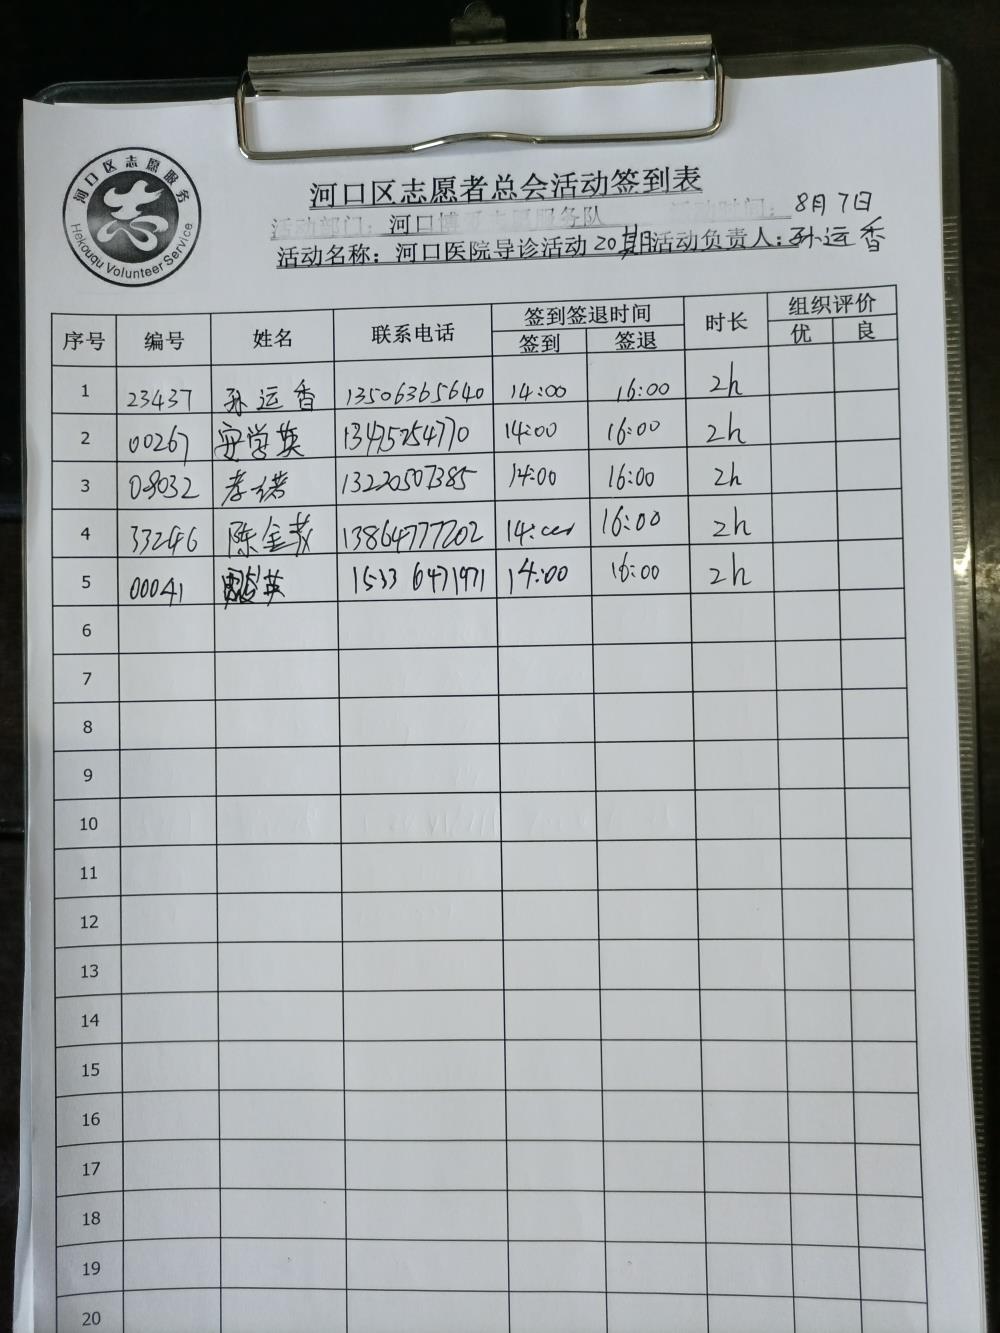 河口区志愿服务
志
Hekouqu Volunteer Service
河口区志愿者总会活动签到表
活动部门：河口博爱志愿服务队 活动时间：8月7日
活动名称：河口医院导诊活动20期 活动负责人：孙运香
序号 编号 姓名 联系电话 签到签退时间 时长 组织评价
签到 签退 优 良
1 23437 孙运香 13506365640 14:00 16:00 2h
2 00267 安学英 13475254770 14:00 16:00 2h
3 08032 13220507385 14:00 16:00 2h
4 33246 陈金 13864777202 16:00 2h
5 00041 英 1533 6471971 14:00 16:00 2h
6
7
8
9
10
11
12
13
14
15
16
17
18
19
20